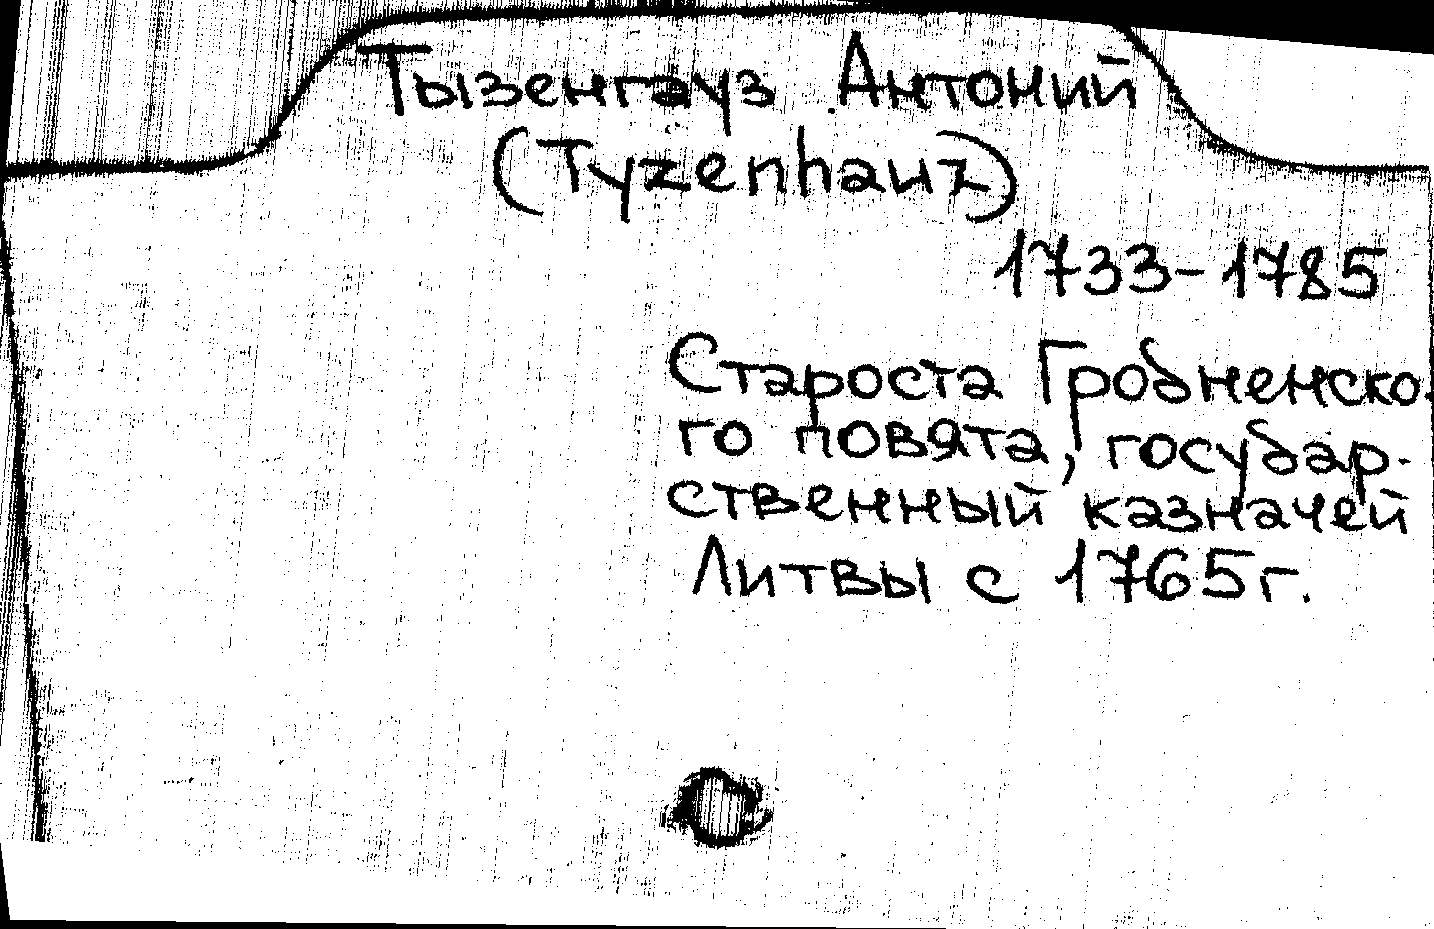 Тызенгауз Антоний
(Tyzenhauz)
1733-1785
Староста Гродненско-
го повята, государ-
ственный казначей
Литвы с 1765г.